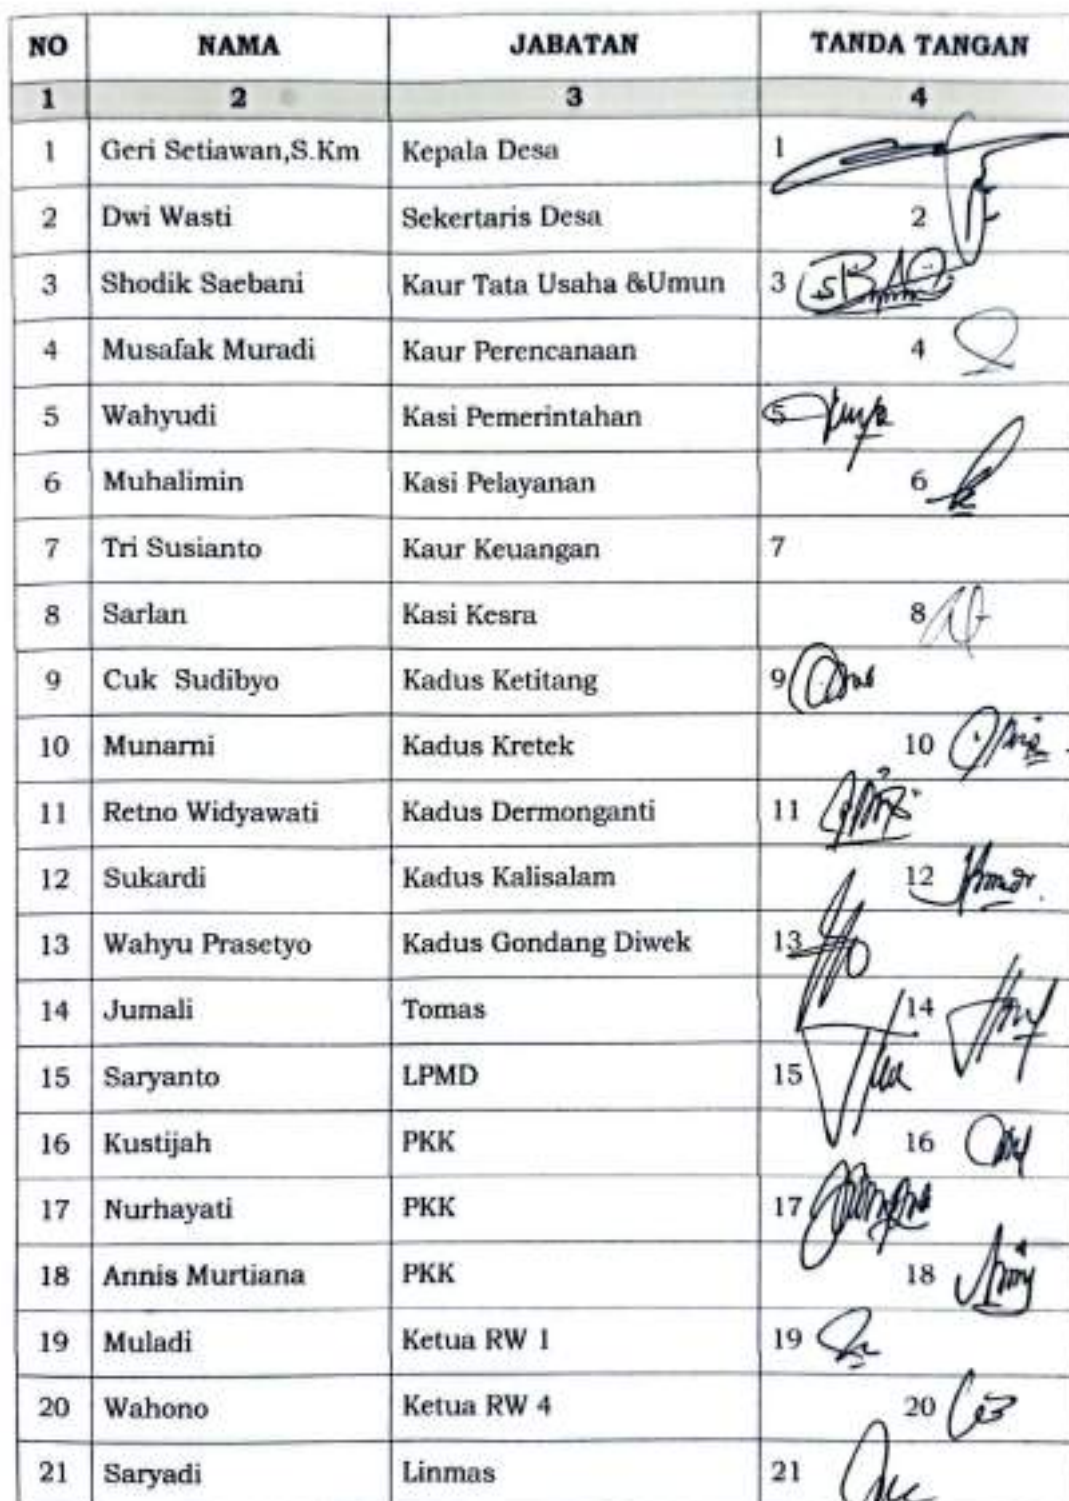 NO NAMA JABATAN TANDA TANGAN
1 2 3 4
1 Geri Setiawan,S.Km Kepala Desa 1
2 Dwi Wasti Sekertaris Desa 2
3 Shodik Saebani Kaur Tata Usaha &Umun 3
4 Musafak Muradi Kaur Perencanaan 4
5 Wahyudi Kasi Pemerintahan 5
6 Muhalimin Kasi Pelayanan 6
7 Tri Susianto Kaur Keuangan 7
8 Sarlan Kasi Kesra 8
9 Cuk Sudibyo Kadus Ketitang 9
10 Munarni Kadus Kretek 10
11 Retno Widyawati Kadus Dermonganti 11
12 Sukardi Kadus Kalisalam 12
13 Wahyu Prasetyo Kadus Gondang Diwek 13
14 Jumali Tomas 14
15 Saryanto LPMD 15
16 Kustijah PKK 16
17 Nurhayati PKK 17
18 Annis Murtiana PKK 18
19 Muladi Ketua RW 1 19
20 Wahono Ketua RW 4 20
21 Saryadi Linmas 21